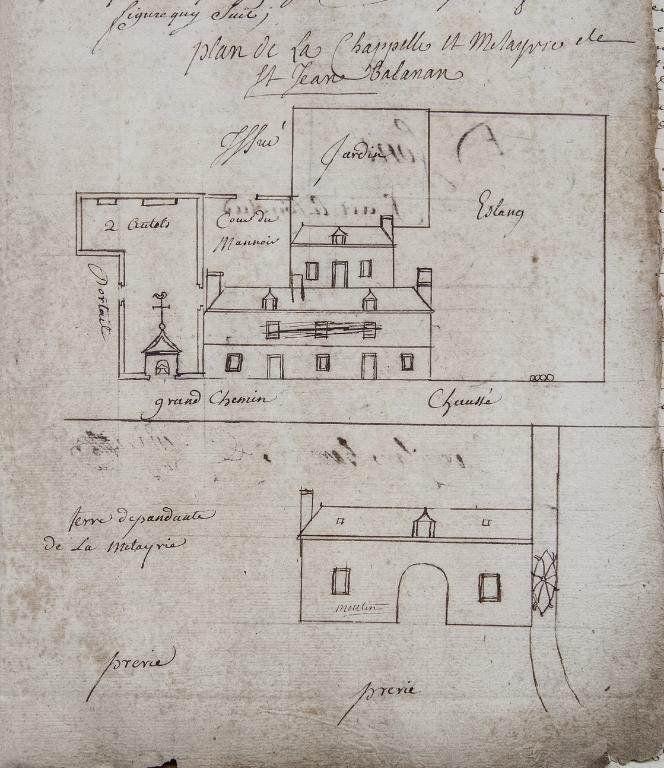 figure quy suit ;
plan de La Chappelle et Metayrie de
St Jean Balanan
Issue
Jardin
Estang
2 Autels
Cour du
Mannoir
Portait
grand Chemin
Chaussé
terre depandante
de La Metayrie
moulin
prerie
prerie